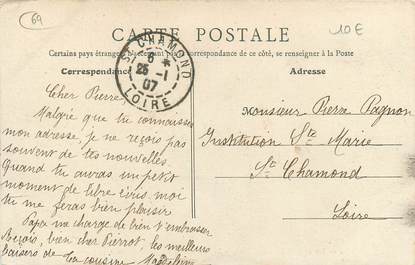 69
10€
CARTE POSTALE
Certains pays étrangers n'acceptent pas la correspondance de ce côté, se renseigner à la Poste
Correspondance
Adresse
St CHAMOND
6
25 -1
07
LOIRE
Cher Pierre,
Malgré que tu connaisses
mon adresse, je ne reçois pas
souvent de tes nouvelles.
Quand tu auras un petit
moment de libre écris-moi
tu me feras bien plaisir
Papa me charge de bien t'embrasser
Reçois, bien cher Pierrot, les meilleurs
baisers de ta cousine Madeleine
Monsieur Pierre Pagnon
Institution Ste Marie
St Chamond
Loire